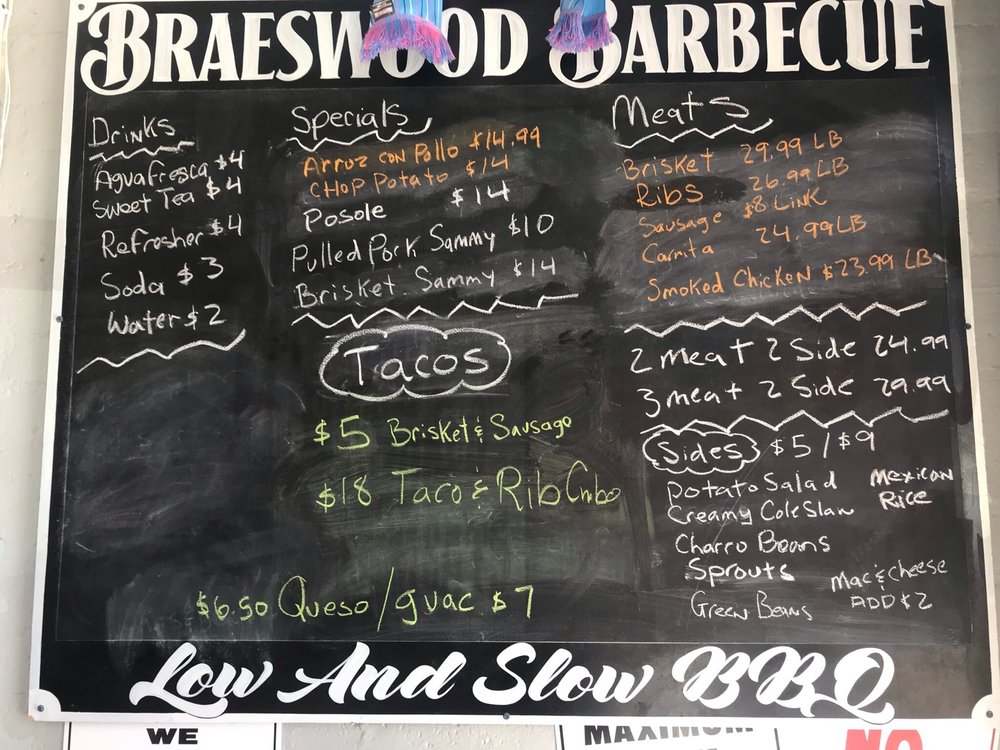 BRAESWOOD BARBECUE
Drinks
Agua Fresca $4
Sweet Tea $4
Refresher $4
Soda $3
Water $2
Specials
Arroz con Pollo $14.99
CHOP Potato $14
Posole $14
Pulled Pork Sammy $10
Brisket Sammy $14
Tacos
$5 Brisket & Sausage
$18 Taco & Rib Cmbo
$6.50 Queso/guac $7
Meats
Brisket 29.99 LB
Ribs 26.99 LB
Sausage $8 Link
Carnita 24.99 LB
Smoked Chicken $23.99 LB
2 meat 2 Side 24.99
3 meat 2 Side 29.99
Sides $5/$9
Potato Salad
Creamy Cole Slaw
Charro Beans
Sprouts
Green Beans
Mexican
Rice
Mac & Cheese
ADD $2
Low And Slow BBQ
WE
MAXIMUM
NO